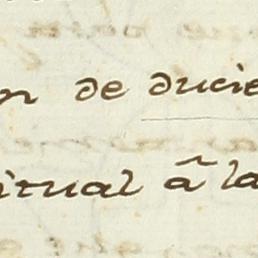 n de ducie
itual ã la